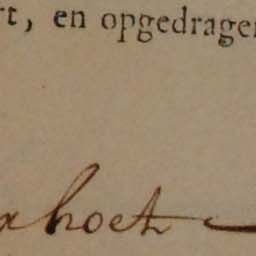 rt, en opgedragen
ahoet